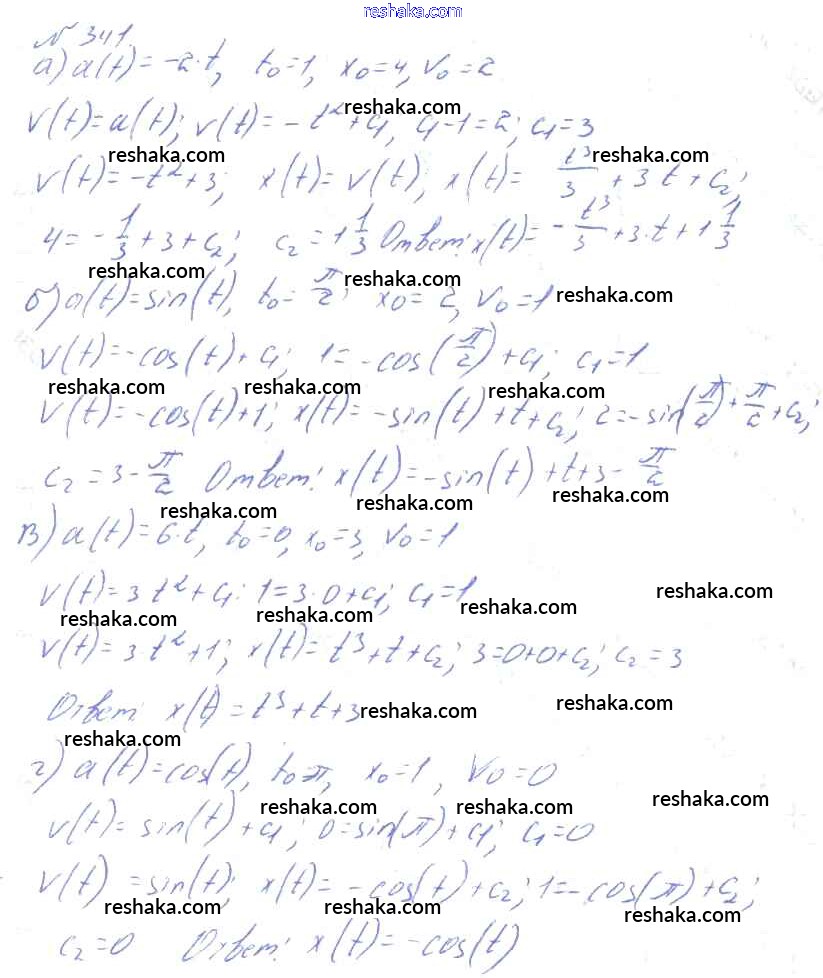 reshaka.com
№ 341.
а) a(t) = -2·t, t₀=1, x₀=4, v₀=2
reshaka.com
v(t)=a(t); v(t)= -t²+c₁, c₁-1=2; c₁=3
reshaka.com reshaka.com
v(t)=-t²+3; x(t)=v(t), x(t)= t³/3 + 3t + c₂;
4= -1/3 +3+c₂; c₂=1 1/3 Ответ: x(t)= -t³/3 +3·t+1 1/3
reshaka.com reshaka.com reshaka.com
б) a(t)=sin(t), t₀=π/2; x₀=2, v₀=1
v(t)=-cos(t)+c₁; 1=-cos(π/2)+c₁; c₁=1
reshaka.com reshaka.com reshaka.com
v(t)=-cos(t)+1; x(t)=-sin(t)+t+c₂; 2=-sin(π/2)+π/2+c₂;
c₂=3-π/2 Ответ: x(t)=-sin(t)+t+3-π/2
reshaka.com reshaka.com reshaka.com
в) a(t)=6·t, t₀=0, x₀=3, v₀=1
v(t)=3·t²+c₁: 1=3·0+c₁; c₁=1
reshaka.com reshaka.com reshaka.com reshaka.com
v(t)=3·t²+1; x(t)=t³+t+c₂; 3=0+0+c₂; c₂=3
Ответ: x(t)=t³+t+3
reshaka.com reshaka.com reshaka.com
г) a(t)=cos(t), t₀=π, x₀=1, v₀=0
reshaka.com reshaka.com reshaka.com
v(t)=sin(t)+c₁; 0=sin(π)+c₁; c₁=0
v(t)=sin(t); x(t)=-cos(t)+c₂; 1=-cos(π)+c₂;
reshaka.com reshaka.com reshaka.com
c₂=0 Ответ: x(t)=-cos(t)